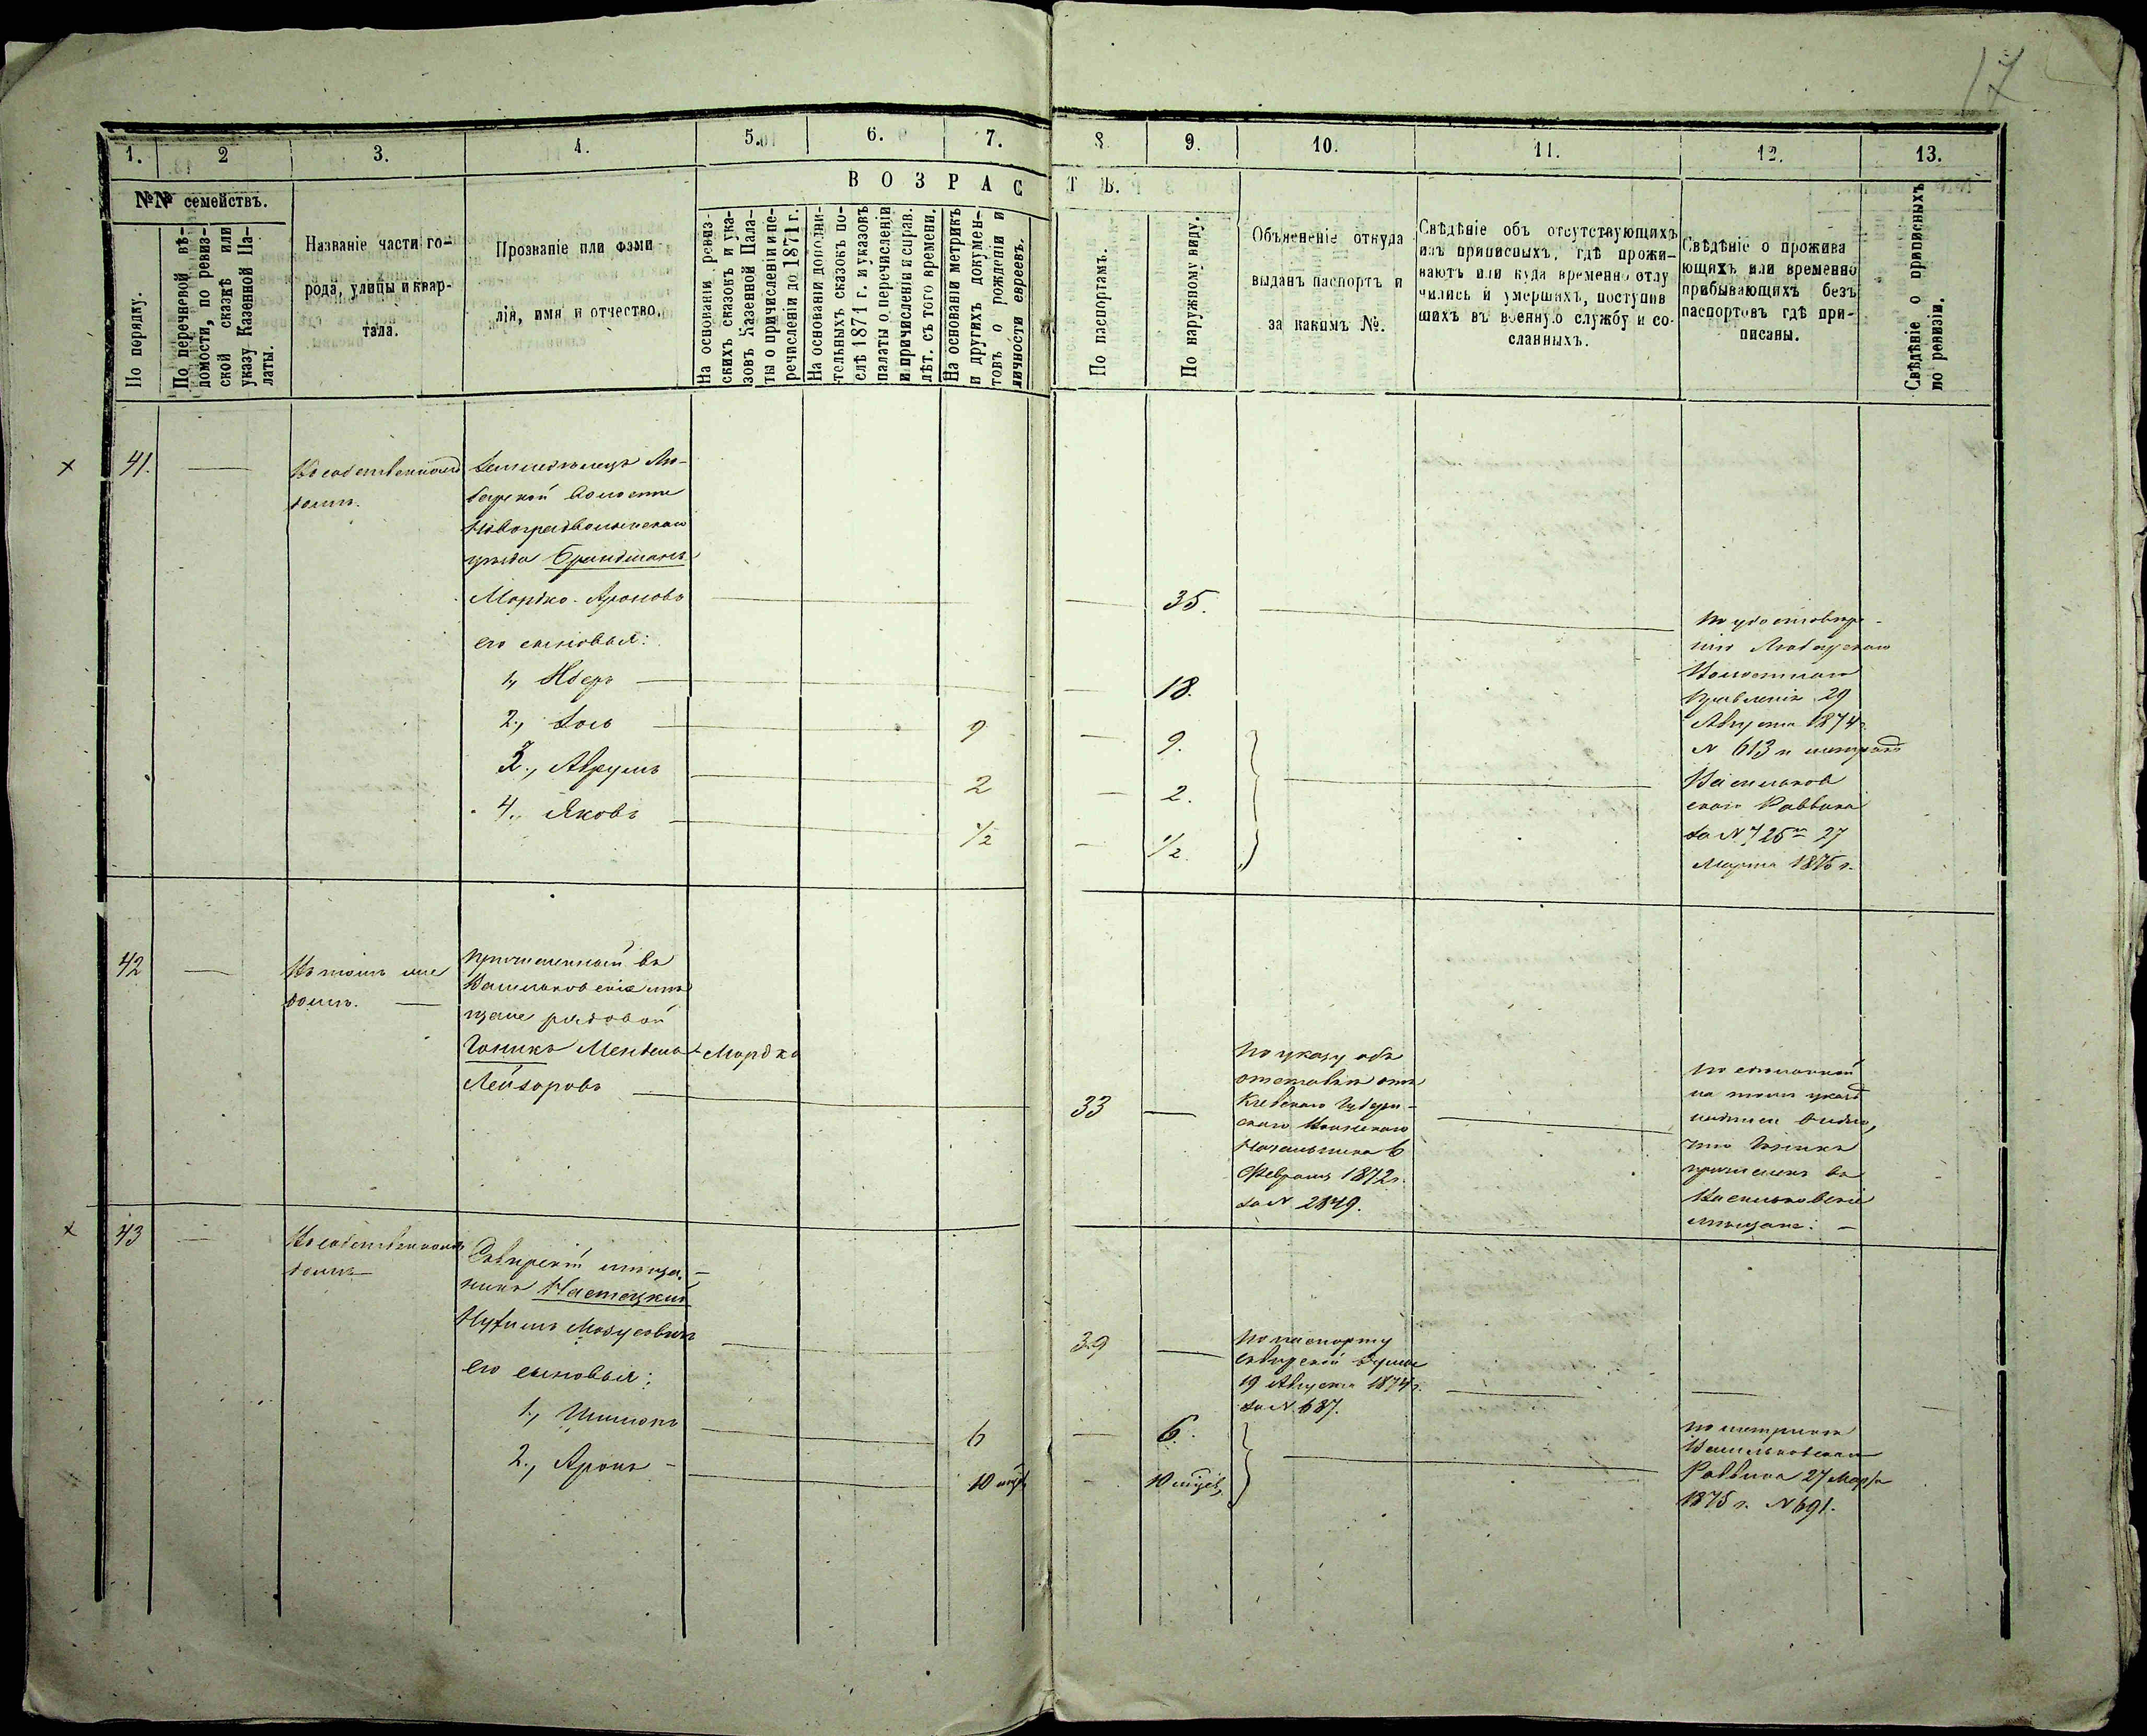 17
1.
2
3.
4.
5.
6.
7.
8.
9.
10.
11.
12.
13.
№№ семействъ.
По порядку.
По перечневой вѣ-
домости, по ревиз-
ской сказкѣ или
указу Казенной Па-
латы.
Названіе части го-
рода, улицы и квар-
тала.
Прозваніе или фами
лія, имя и отчество.
ВОЗРАСТЪ.
На основаніи ревиз-
скихъ сказокъ и ука-
зовъ Казенной Пала-
ты о причисленіи и пе-
речисленіи до 1871 г.
На основаніи дополни-
тельныхъ сказокъ по-
слѣ 1871 г. и указовъ
палаты о перечисленіи
и причисленіи и справ.
лѣт. съ того времени.
На основаніи метрикъ
и другихъ докумен-
товъ о рожденіи и
личности евреевъ.
По паспортамъ.
По наружному виду.
Объясненіе откуда
выданъ паспортъ и
за какимъ №.
Свѣдѣніе объ отсутствующихъ
изъ приписныхъ, гдѣ прожи-
ваютъ или куда временно отлу
чились и умершихъ, поступив
шихъ въ военную службу и со-
сланныхъ.
Свѣдѣніе о прожива
ющихъ или временно
прибывающихъ безъ
паспортовъ гдѣ при-
писаны.
Свѣдѣніе о приписныхъ
по ревизіи.
41.
Въ собственномъ
домѣ.
Земледѣлецъ Лю-
барской волости
Новоградволынскаго
уѣзда
Мордко Ароновъ
35.
его сыновья:
1., Аберъ
18.
2., Зось
9
9.
3., Аврумъ
2
2.
4., Яковъ
1/2
1/2.
По удостовѣре-
нію Любарскаго
Волостнаго
Правленія 29
Августа 1874 г.
N 613 и метрикѣ
Васильков
скаго Раввина
за N 725 27
Марта 1875 г.
42
Въ томъ же
домѣ.
Причисленный въ
Васильковскіе мѣ
щане рядовой
Гоникъ Мендель-Мордко
Лейзоровъ
33
По указу объ
отставкѣ отъ
Кіевскаго Губерн-
скаго Воинскаго
Начальника 6
Февраля 1872 г.
за N 2849.
По сдѣланной
на томъ указѣ
надписи видно,
что Гоникъ
причисленъ въ
Васильковскіе
мѣщане.
43
Въ собственномъ
домѣ
Сквирскій мѣща-
нинъ Настецкій
Нухимъ Мошуловичъ
39
По паспорту
Сквирской Думы
19 Августа 1874 г.
за N 687.
его сыновья:
1., Шимонъ
6
6.
2., Аронъ
10 мѣс.
10 мѣсяц.
По метрикѣ
Васильковскаго
Раввина 27 Марта
1875 г. N 691.